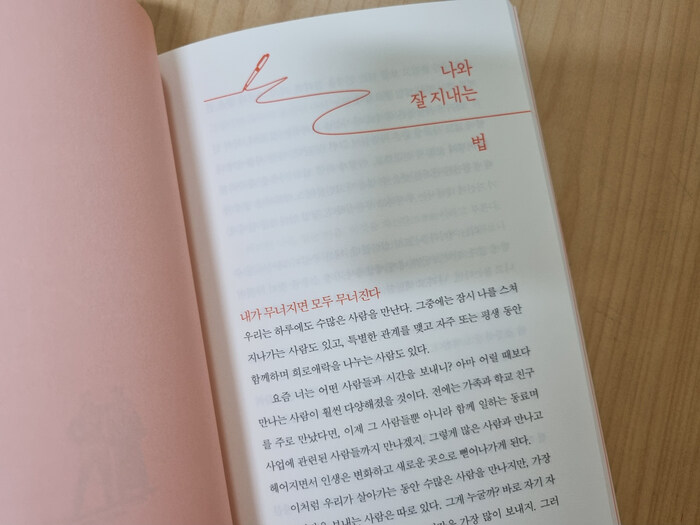 나와
잘 지내는
법
내가 무너지면 모두 무너진다
우리는 하루에도 수많은 사람을 만난다. 그중에는 잠시 나를 스쳐
지나가는 사람도 있고, 특별한 관계를 맺고 자주 또는 평생 동안
함께하며 희로애락을 나누는 사람도 있다.
요즘 너는 어떤 사람들과 시간을 보내니? 아마 어릴 때보다
만나는 사람이 훨씬 다양해졌을 것이다. 전에는 가족과 학교 친구
를 주로 만났다면, 이제 그 사람들뿐 아니라 함께 일하는 동료며
사업에 관련된 사람들까지 만나겠지. 그렇게 많은 사람과 만나고
헤어지면서 인생은 변화하고 새로운 곳으로 뻗어나가게 된다.
이처럼 우리가 살아가는 동안 수많은 사람을 만나지만, 가장
보내는 사람은 따로 있다. 그게 누굴까? 바로 자기 자
가장 많이 보내지. 그러